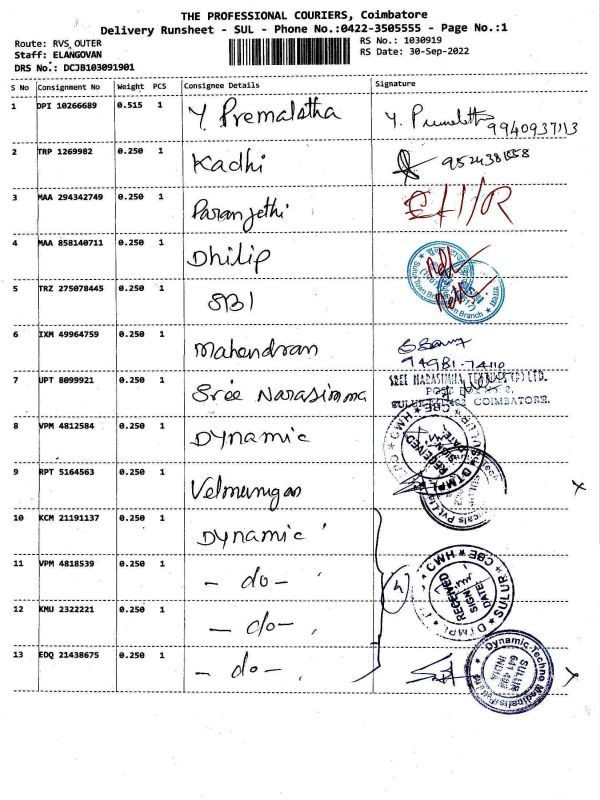 THE PROFESSIONAL COURIERS, Coimbatore
Delivery Runsheet - SUL - Phone No.:0422-3505555 - Page No.:1
Route: RVS, OUTER
Staff: ELANGOVAN
DRS No.: DCJB103091901
RS No.: 1030919
RS Date: 30-Sep-2022
S No Consignment No Weight PCS Consignee Details Signature
1 DPI 10266689 0.515 1 Y Premalatha Y. Premalatha
2 TRP 1269982 0.250 1 Kadhi
3 MAA 294342749 0.250 1 Paranjethi
4 MAA 858140711 0.250 1 Dhilip
5 TRZ 275078445 0.250 1 SBI
6 IXM 49964759 0.250 1 Mahendran
94981-74110
7 UPT 8099921 0.250 1 Sree Narasimma
SREE NARASIMHA (P) LTD.
COIMBATORE.
8 VPM 4812584 0.250 1 Dynamic
CWH ★ CBE ★
RECEIVED
SIGN
DATE
9 RPT 5164563 0.250 1 Velmurugan
10 KCM 21191137 0.250 1 Dynamic
11 VPM 4818539 0.250 1 - do -
12 KMU 2322221 0.250 1 - do -
CWH ★ CBE ★ SULUR
RECEIVED
SIGN
DATE
13 EDQ 21438675 0.250 1 - do -
Dynamic Techno Medicals
SULUR
INDIA